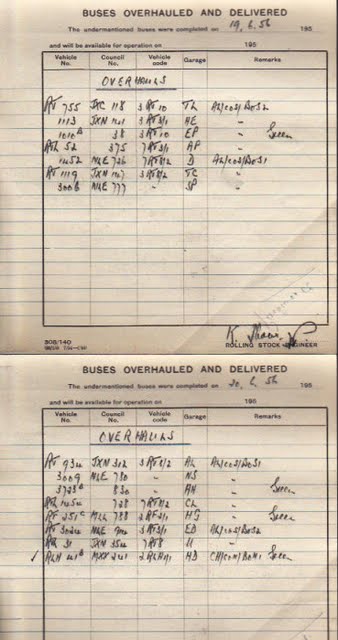 BUSES OVERHAULED AND DELIVERED
The undermentioned buses were completed on 19.6.56 195
and will be available for operation on 195
Vehicle No. Council No. Vehicle code Garage Remarks
OVERHAULS
RT 755 JXC 118 3RT10 TL AL/COS/BOS2
1113 JXN 141 3RT3/1 AE "
1010 38 3RT10 EP " Green
RTL 52 375 7RT3/1 AP "
1452 NLE 726 7RT8/2 D AL/COS/BOS1
RT 1119 JXN 147 3RT8/2 TC "
3006 NLE 777 " SP "
K.
ROLLING STOCK ENGINEER
308/140
BUSES OVERHAULED AND DELIVERED
The undermentioned buses were completed on 20.6.56 195
and will be available for operation on 195
Vehicle No. Council No. Vehicle code Garage Remarks
OVERHAULS
RT 934 JXN 312 3RT8/2 AL AL/COS/BOS1
3009 NLE 780 " NS "
3723 830 " AH " Green
728 7RT8/2 CL "
RF 251 MLL 788 2RF2/1 HG " Green
RT 3024 NLE 3RT3/1 ED AL/COS/BOS2
31 JXN 354 7RT8 U "
✓ RLH 41 MXX 241 2RLH1/1 HD Green